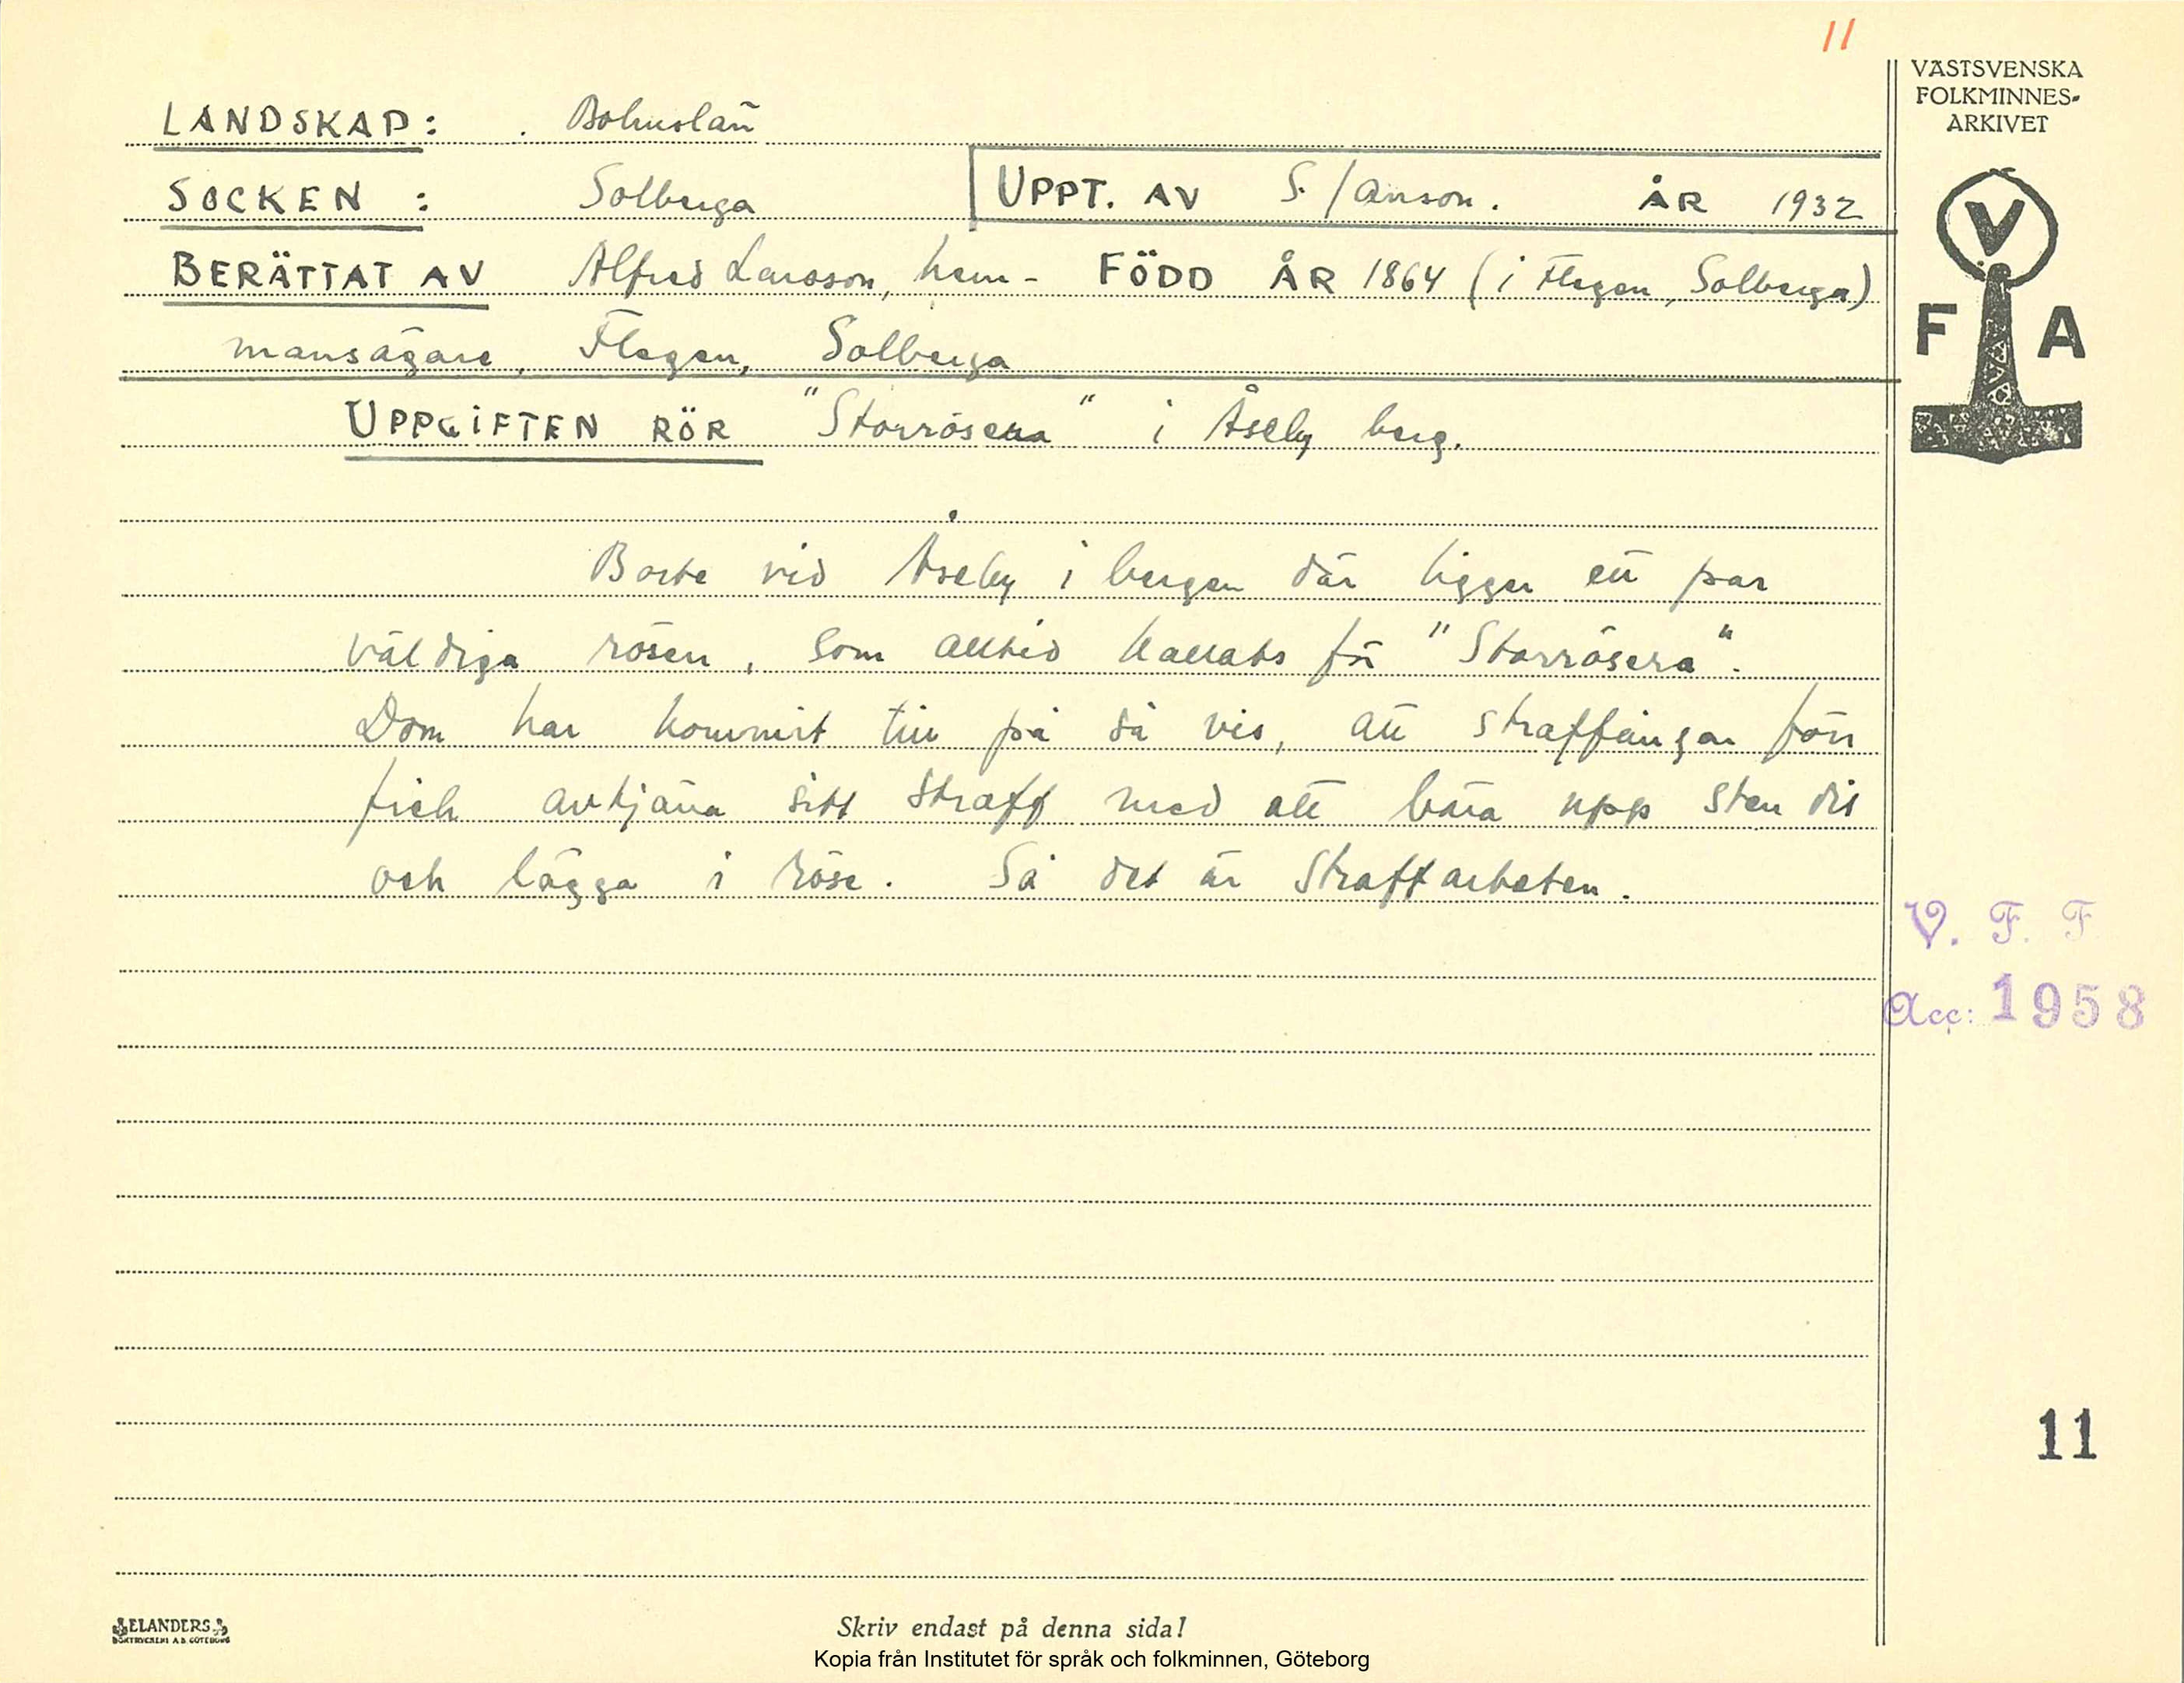 11
VÄSTSVENSKA
FOLKMINNES-
ARKIVET
LANDSKAP: Bohuslän
SOCKEN : Solberga
UPPT. AV S. Janson. ÅR 1932
BERÄTTAT AV Alfred Larsson, hem- FÖDD ÅR 1864 (i Flegen, Solberga)
mansägare, Flegen, Solberga
UPPGIFTEN RÖR "Storrösera" i Åseby berg.
V
F A
Borte vid Åseby i bergen där ligger ett par
väldiga rösen, som alltid kallats för "Storrösera".
Dom har kommit till på så vis, att straffångar förr
fick avtjäna sitt straff med att bära upp sten dit
och lägga i röse. Så det är straffarbeten.
V. F. F
Acc: 1958
11
ELANDERS
BOKTRYCKERI A.B. GÖTEBORG
Skriv endast på denna sida!
Kopia från Institutet för språk och folkminnen, Göteborg